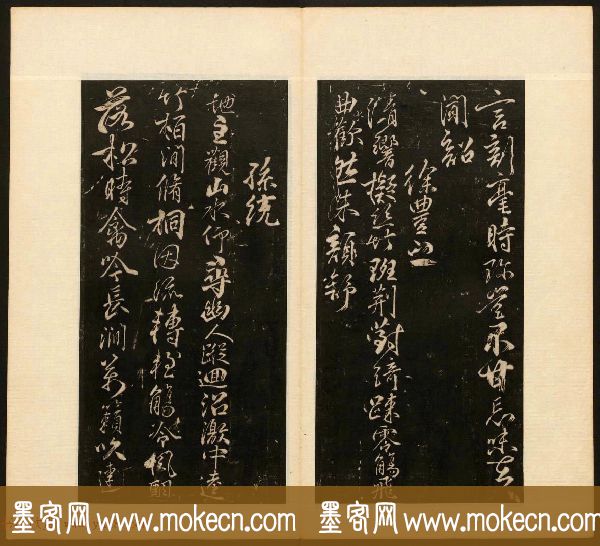 言刻毫時珍豈不甘忘味在
聞韶
徐豐之
清響擬絲竹班荊對綺踈零觴飛
曲歡然朱顏舒
孫統
地主觀山水仰尋幽人蹤迴沼激中逵
竹柏間脩桐因流轉輕觴冷風飄
落松時禽吟長澗萬籟吹連
墨客网 www.mokecn.com 墨客网 www.mokecn.com